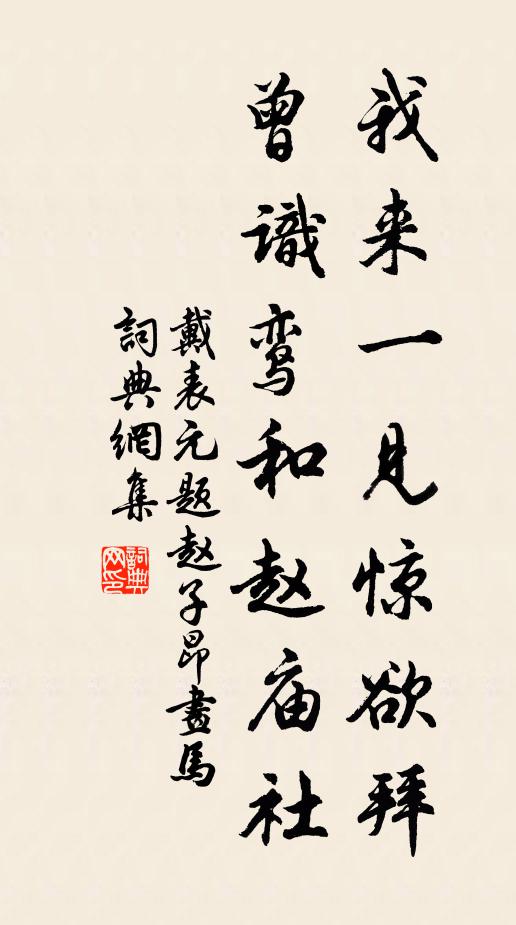 我来一见惊欲拜
曾識鸾和赵庙社
戴表元题赵子昂畫馬
詞典網集
詞典网印